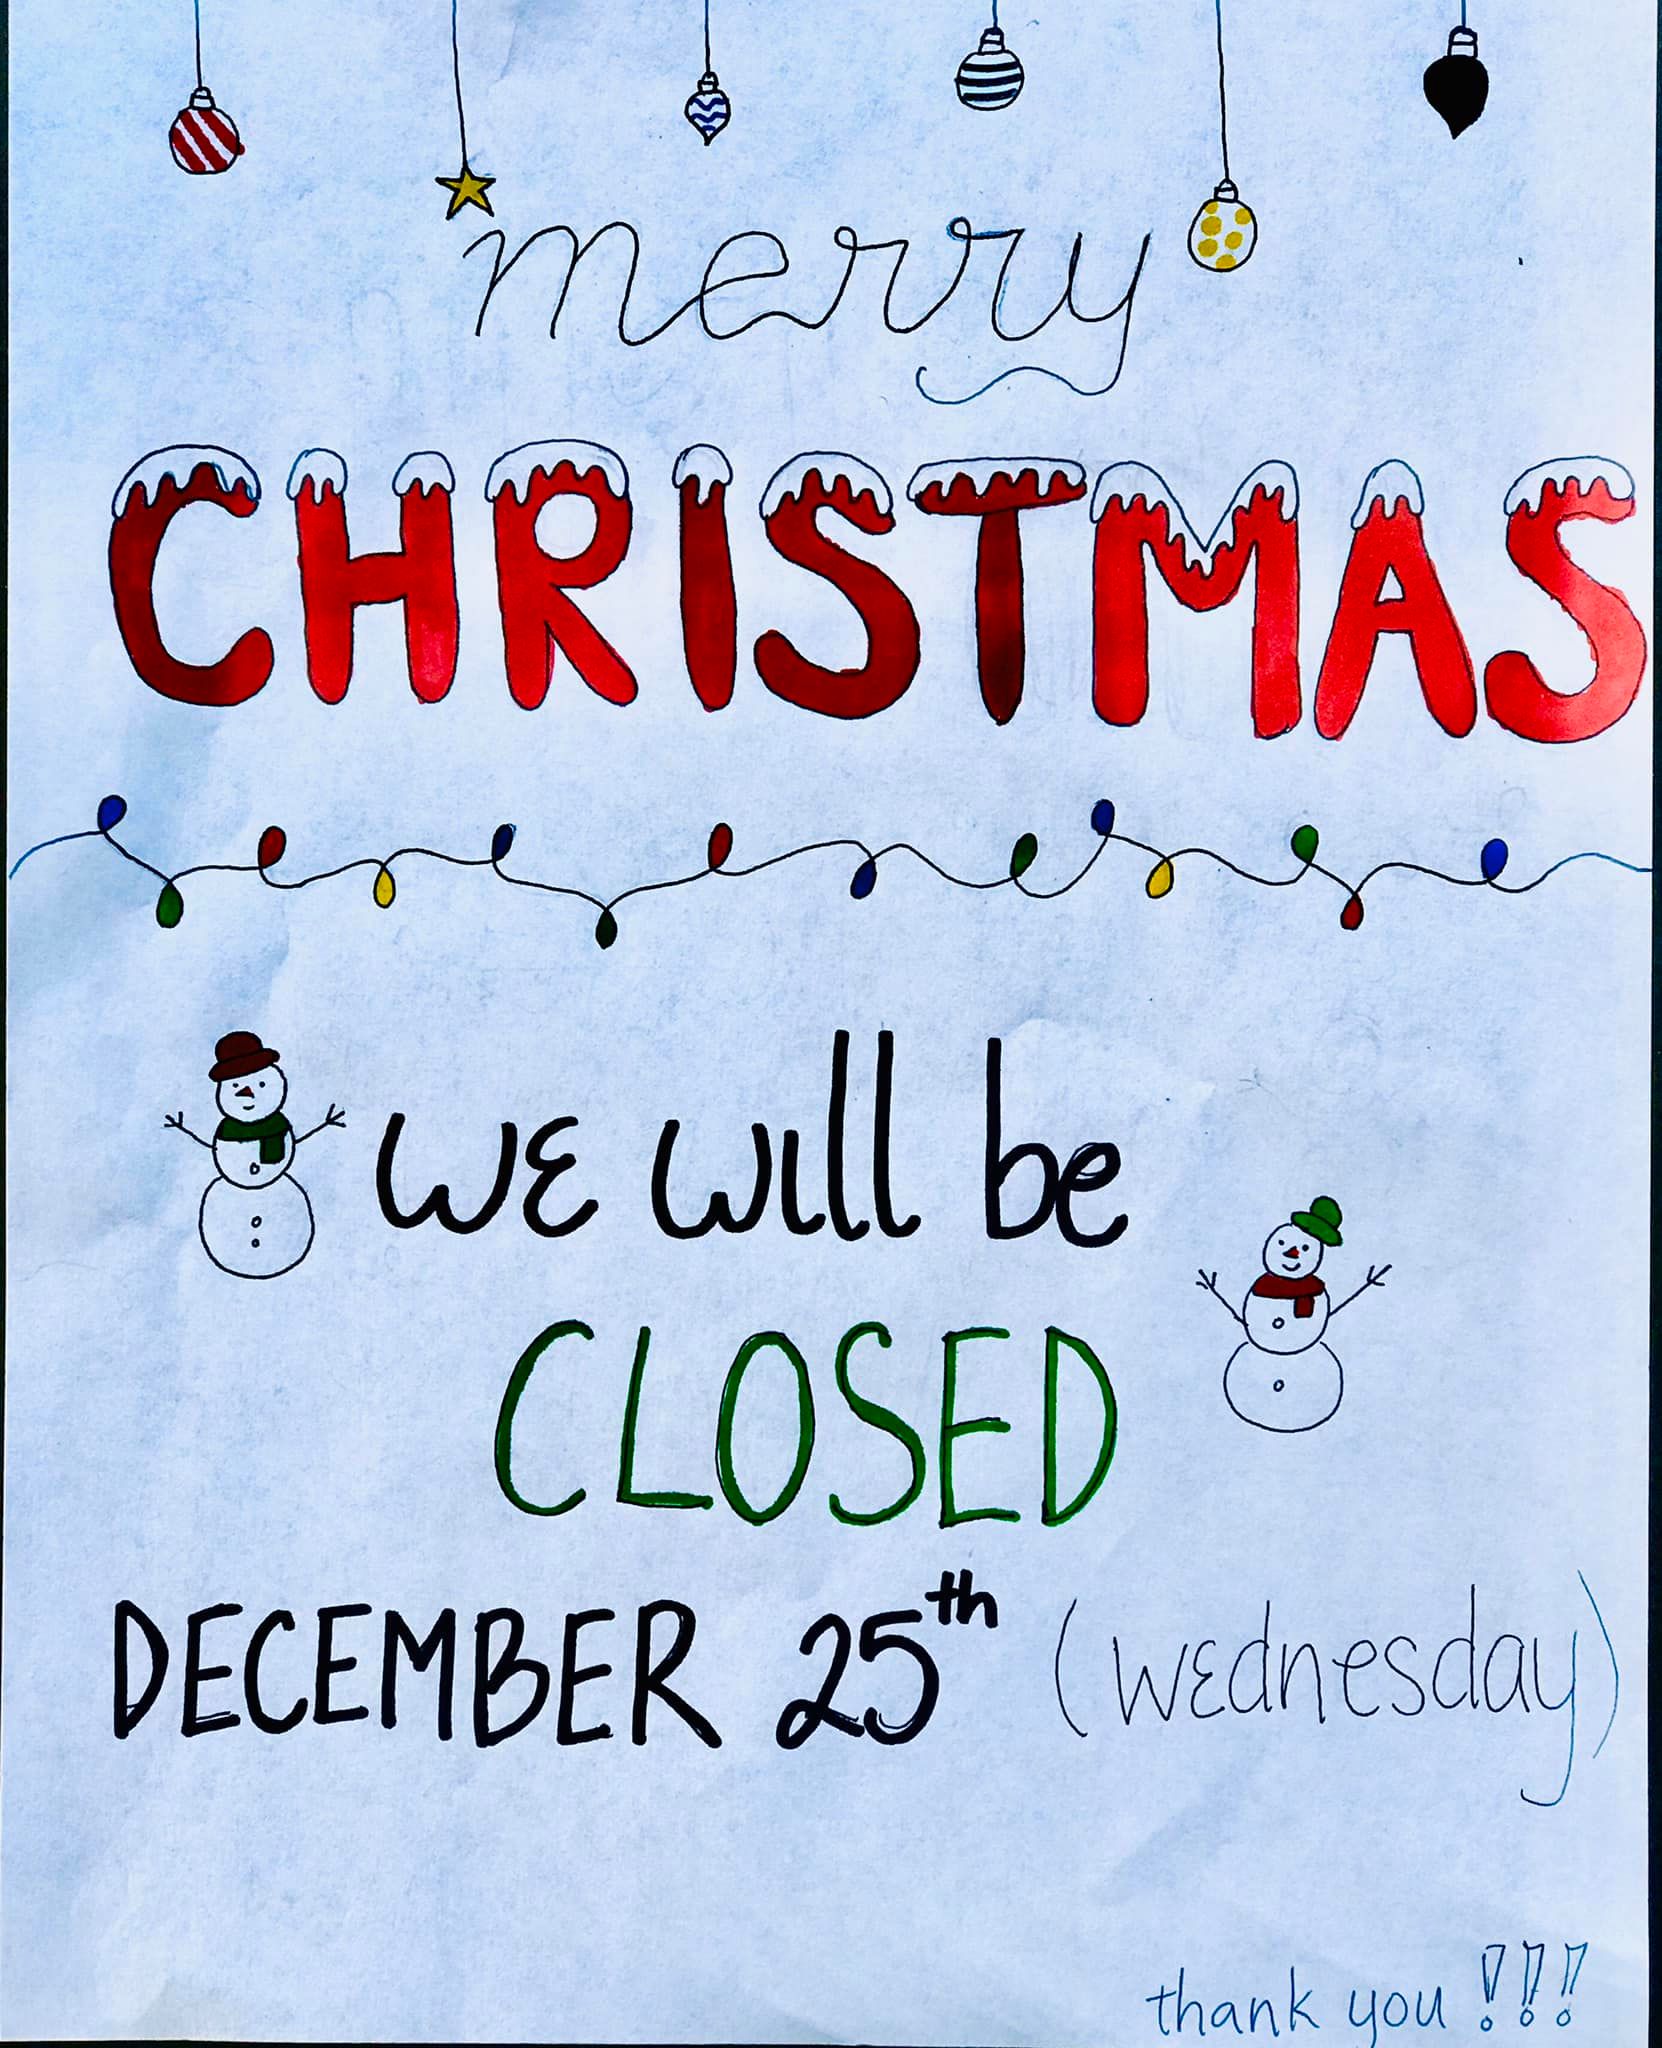 merry
CHRISTMAS
we will be
CLOSED
DECEMBER 25th (wednesday)
thank you !!!